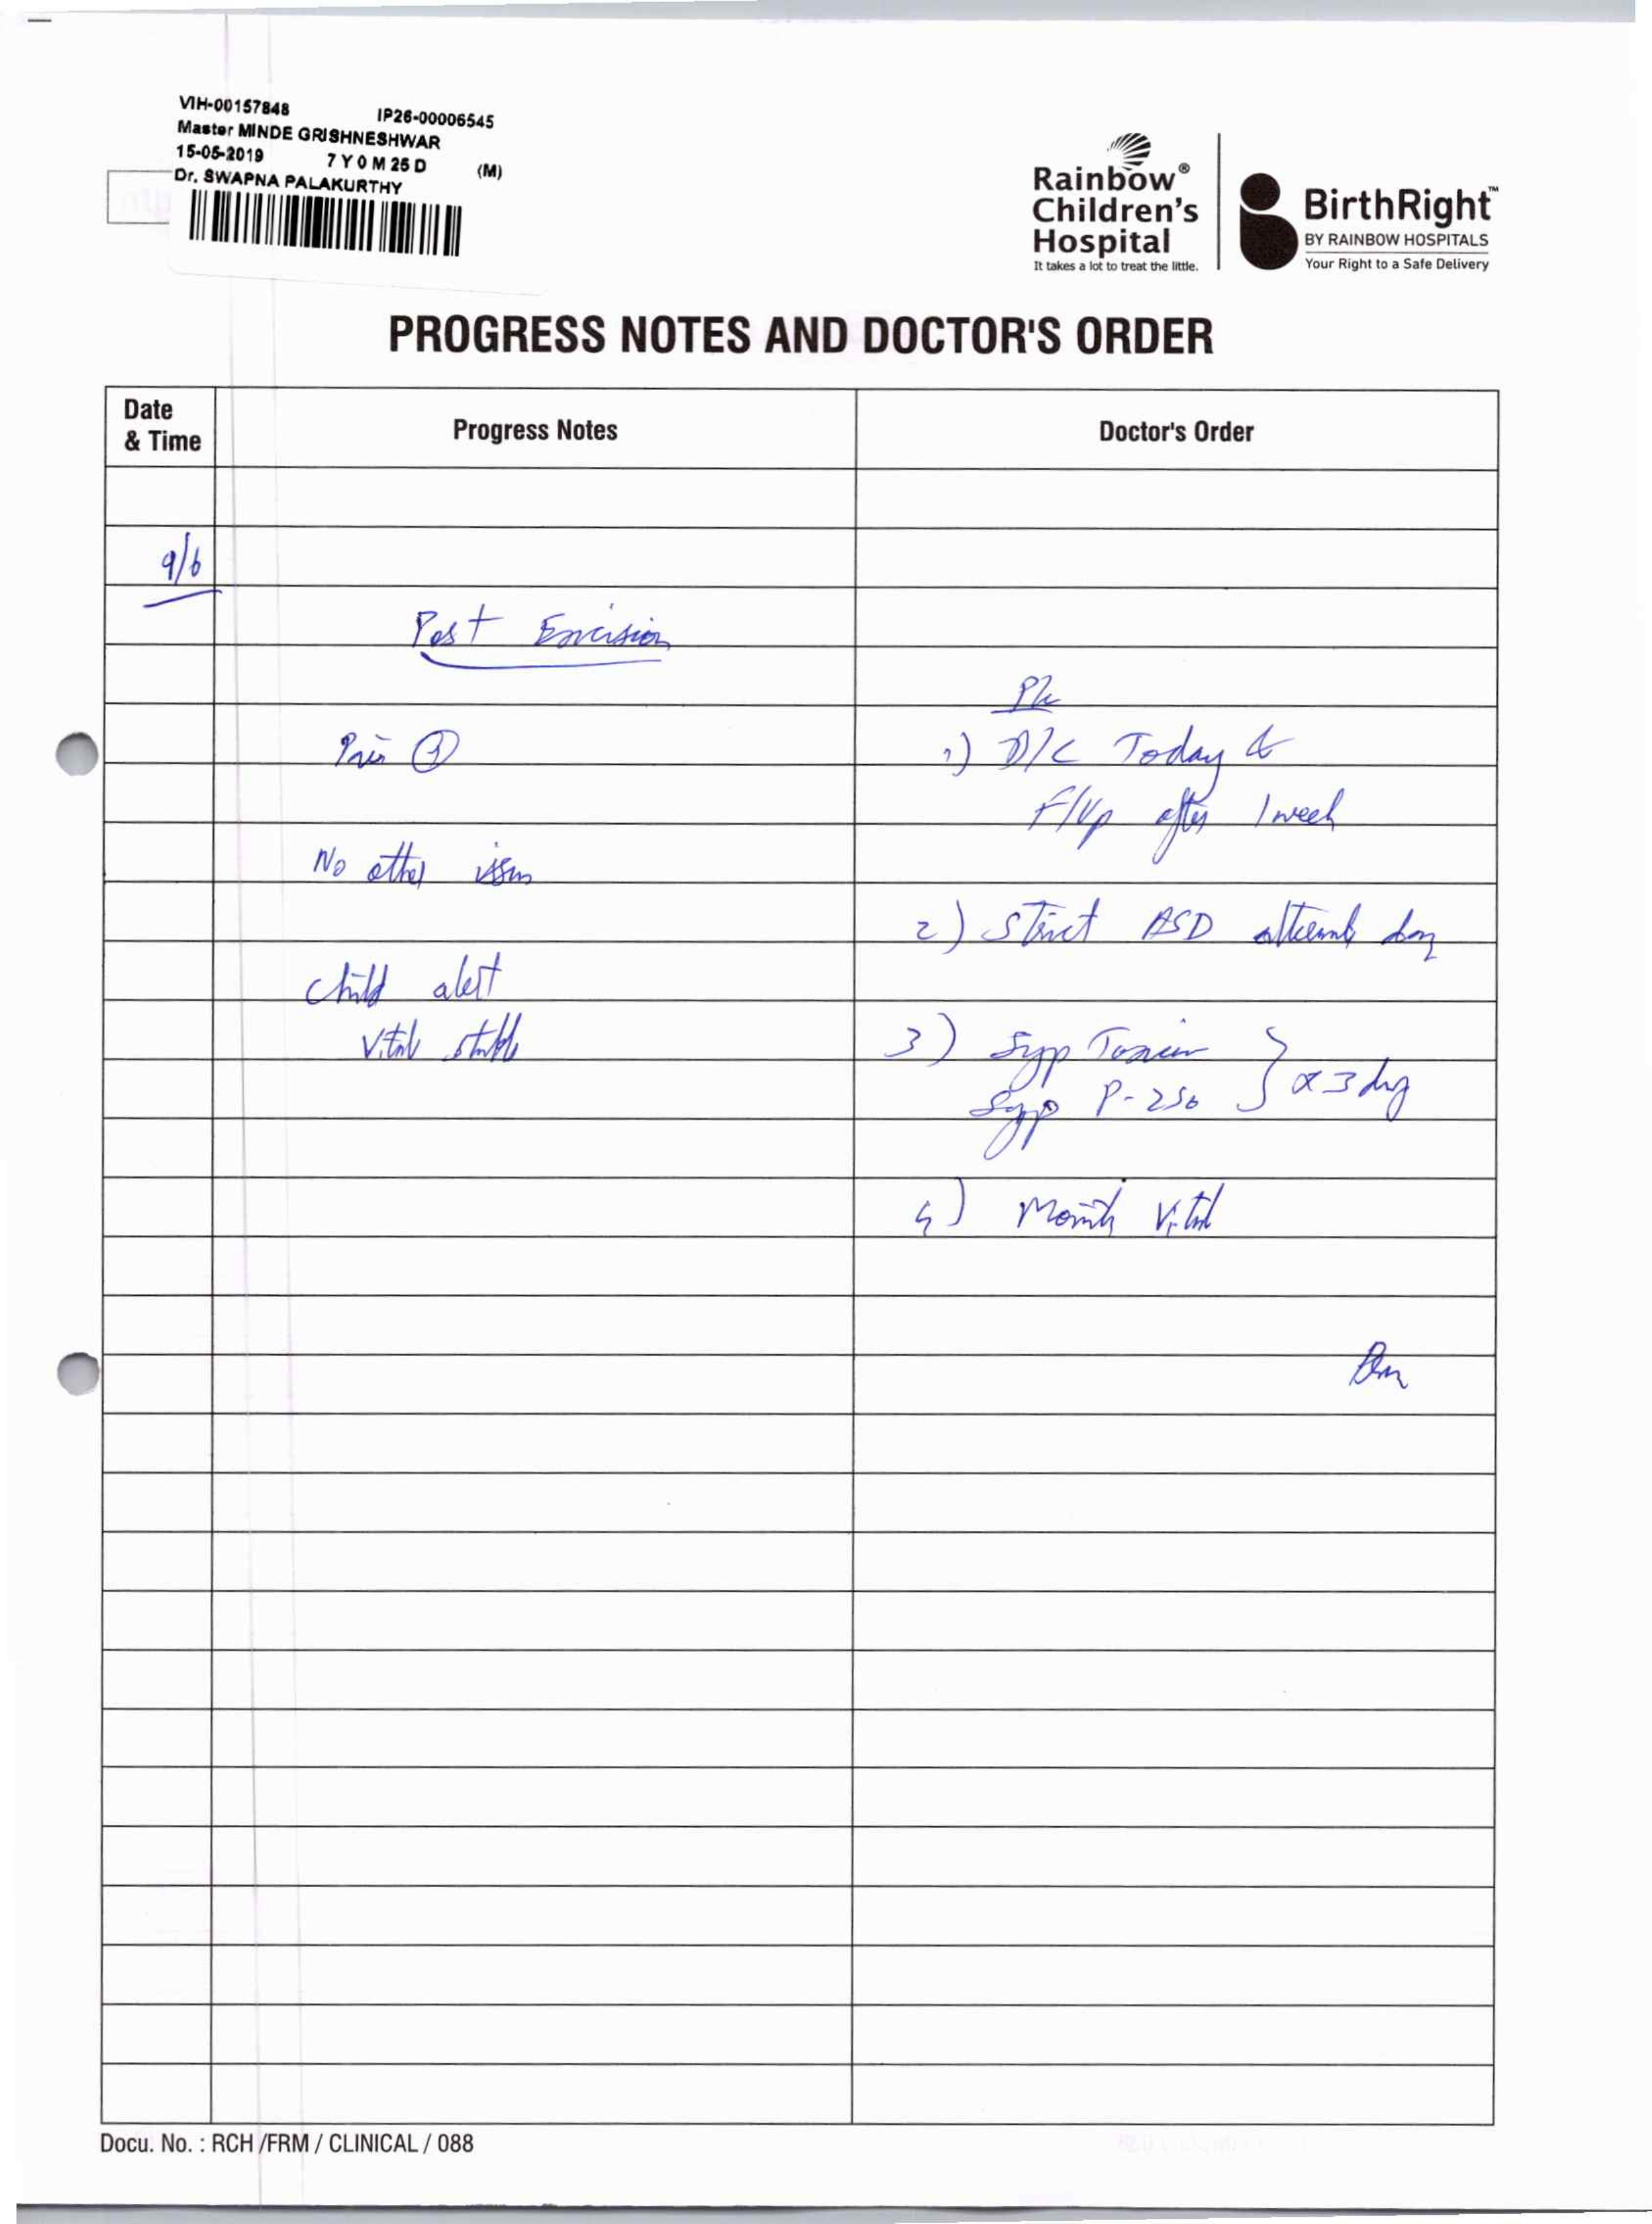 VIH-00157848 IP26-00006545
Master MINDE GRISHNESHWAR
15-05-2019 7 Y 0 M 25 D (M)
Dr. SWAPNA PALAKURTHY
Rainbow®
Children's
Hospital
It takes a lot to treat the little.
BirthRight™
BY RAINBOW HOSPITALS
Your Right to a Safe Delivery
PROGRESS NOTES AND DOCTOR'S ORDER
Date
& Time
Progress Notes
Doctor's Order
9/6
Post Excision
Pain
1) D/C Today &
F/Up after 1 week
No other issue
2) Strict ASD alternate day
Child alert
Vital stable
3) Syp
Syp P-250 } x 3 day
4) Monitor Vital
Docu. No. : RCH /FRM / CLINICAL / 088